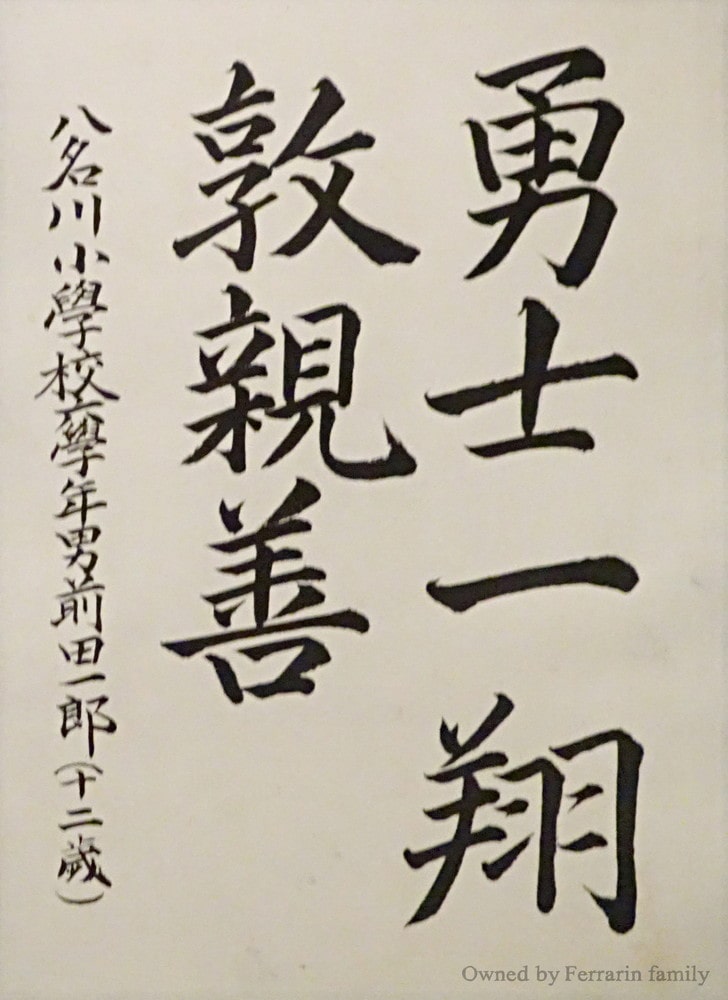 勇士一翔
敦親善
八名川小學校六學年男前田一郎(十二歳)
Owned by Ferrarin family